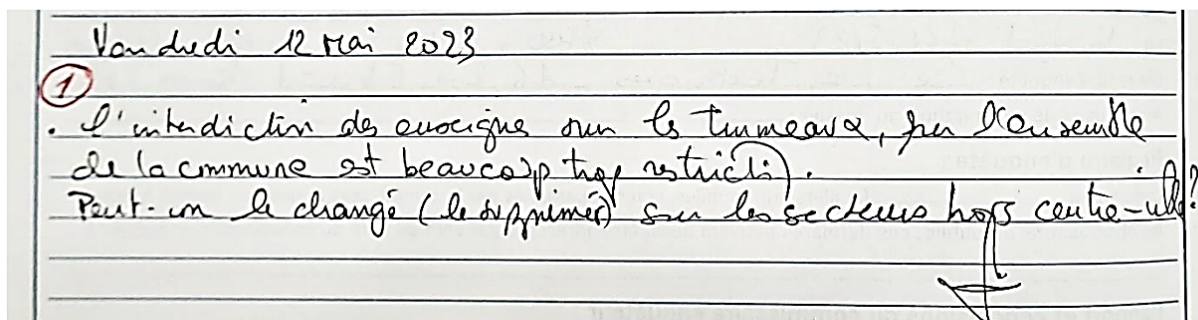 Vendredi 12 Mai 2023
1
. L'interdiction des enseignes sur les trumeaux, sur l'ensemble
de la commune est beaucoup trop restrictif.
Peut-on le changé (le supprimer) sur les secteurs hors centre-ville?